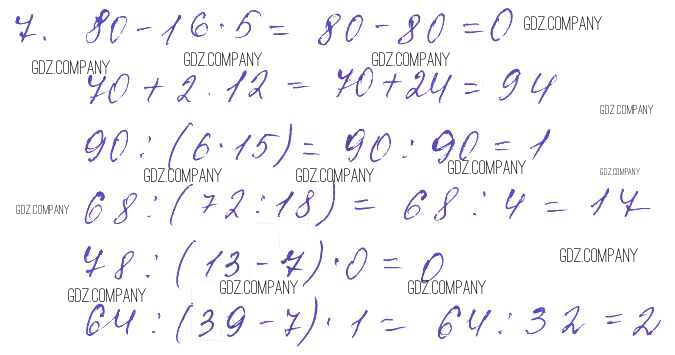 7. 80 - 16 · 5 = 80 - 80 = 0 GDZ.COMPANY
GDZ.COMPANY GDZ.COMPANY GDZ.COMPANY
70 + 2 · 12 = 70 + 24 = 94
GDZ.COMPANY
90 : (6 · 15) = 90 : 90 = 1
GDZ.COMPANY GDZ.COMPANY GDZ.COMPANY GDZ.COMPANY
GDZ.COMPANY 68 : (72 : 18) = 68 : 4 = 17
78 : (13 - 7) · 0 = 0 GDZ.COMPANY
GDZ.COMPANY GDZ.COMPANY GDZ.COMPANY
64 : (39 - 7) · 1 = 64 : 32 = 2